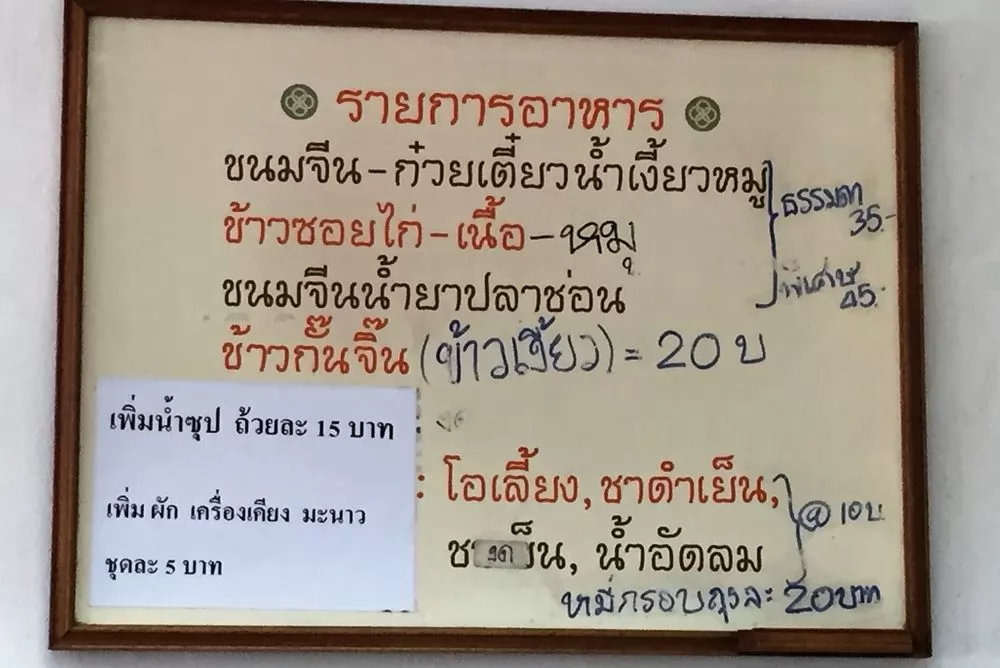 รายการอาหาร
ขนมจีน-ก๋วยเตี๋ยวน้ำเงี้ยวหมู
ธรรมดา
35.-
ข้าวซอยไก่-เนื้อ-หมู
ขนมจีนน้ำยาปลาช่อน
พิเศษ
45.-
ข้าวกั๊นจิ๊น (ข้าวเงี้ยว) = 20 บ
เพิ่มน้ำซุป ถ้วยละ 15 บาท
เพิ่ม ผัก เครื่องเคียง มะนาว
ชุดละ 5 บาท
: โอเลี้ยง, ชาดำเย็น,
@ 10บ.
น้ำอัดลม
หมี่กรอบถุงละ 20บาท